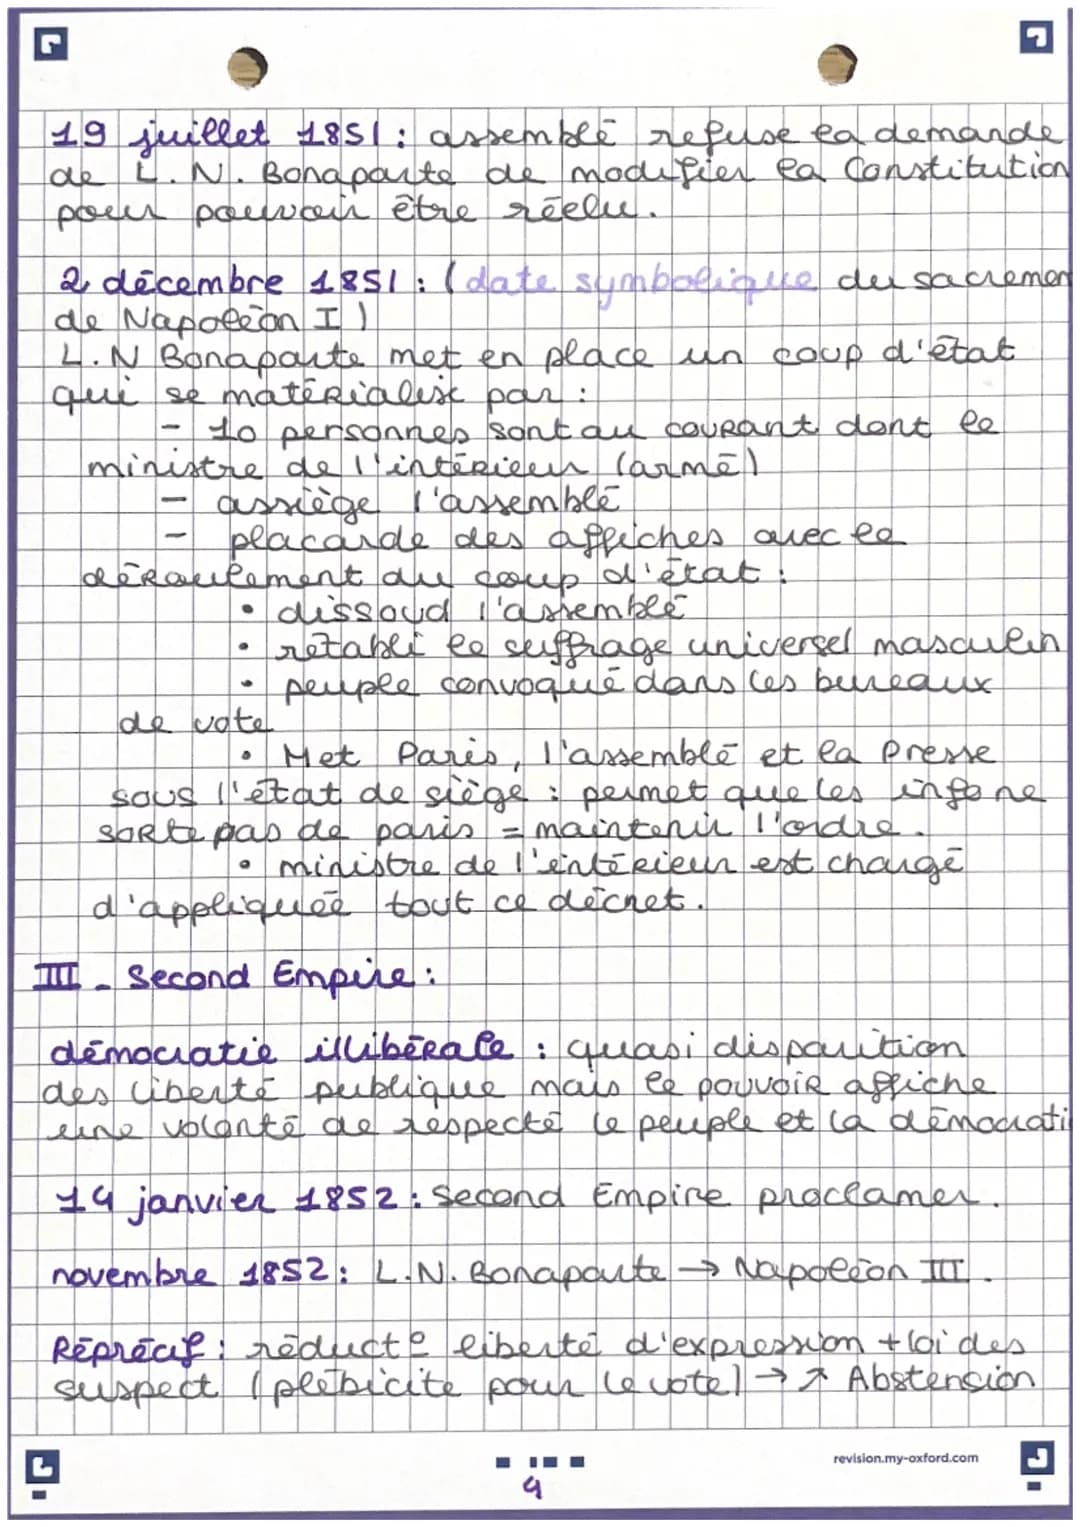 19 juillet 1851 : assemblé refuse la demande
de L. N. Bonaparte de modifier la Constitution
pour pouvoir être réelu.
2 décembre 1851 : (date symbolique du sacremen
de Napoléon I)
L.N Bonaparte met en place un coup d'état
qui se matérialise par :
- 10 personnes sont au courant dont le
ministre de l'intérieur (armé)
- assiège l'assemblé
- placarde des affiches avec le
déroulement du coup d'état :
• dissoud l'assemblé
• rétabli le suffrage universel masculin
• peuple convoqué dans les bureaux
de vote
• Met Paris, l'assemblé et la Presse
sous l'état de siège : permet que les info ne
sorte pas de paris = maintenir l'ordre.
• ministre de l'intérieur est chargé
d'appliquée tout ce décret.
III - Second Empire :
démocratie illibérale : quasi disparition
des liberté publique mais le pouvoir affiche
une volonté de respecté le peuple et la démocrati
14 janvier 1852 : Second Empire proclamer.
novembre 1852 : L.N. Bonaparte → Napoléon III.
Répréçif : réduct° liberté d'expression + loi des
suspect (plébicite pour le vote) → ↗ Abstension
revision.my-oxford.com
4